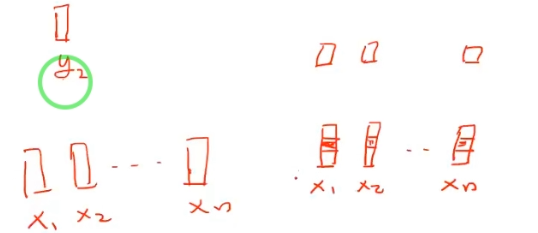 y₂
x₁ x₂ --- xₙ
x₁ x₂ -- xₙ